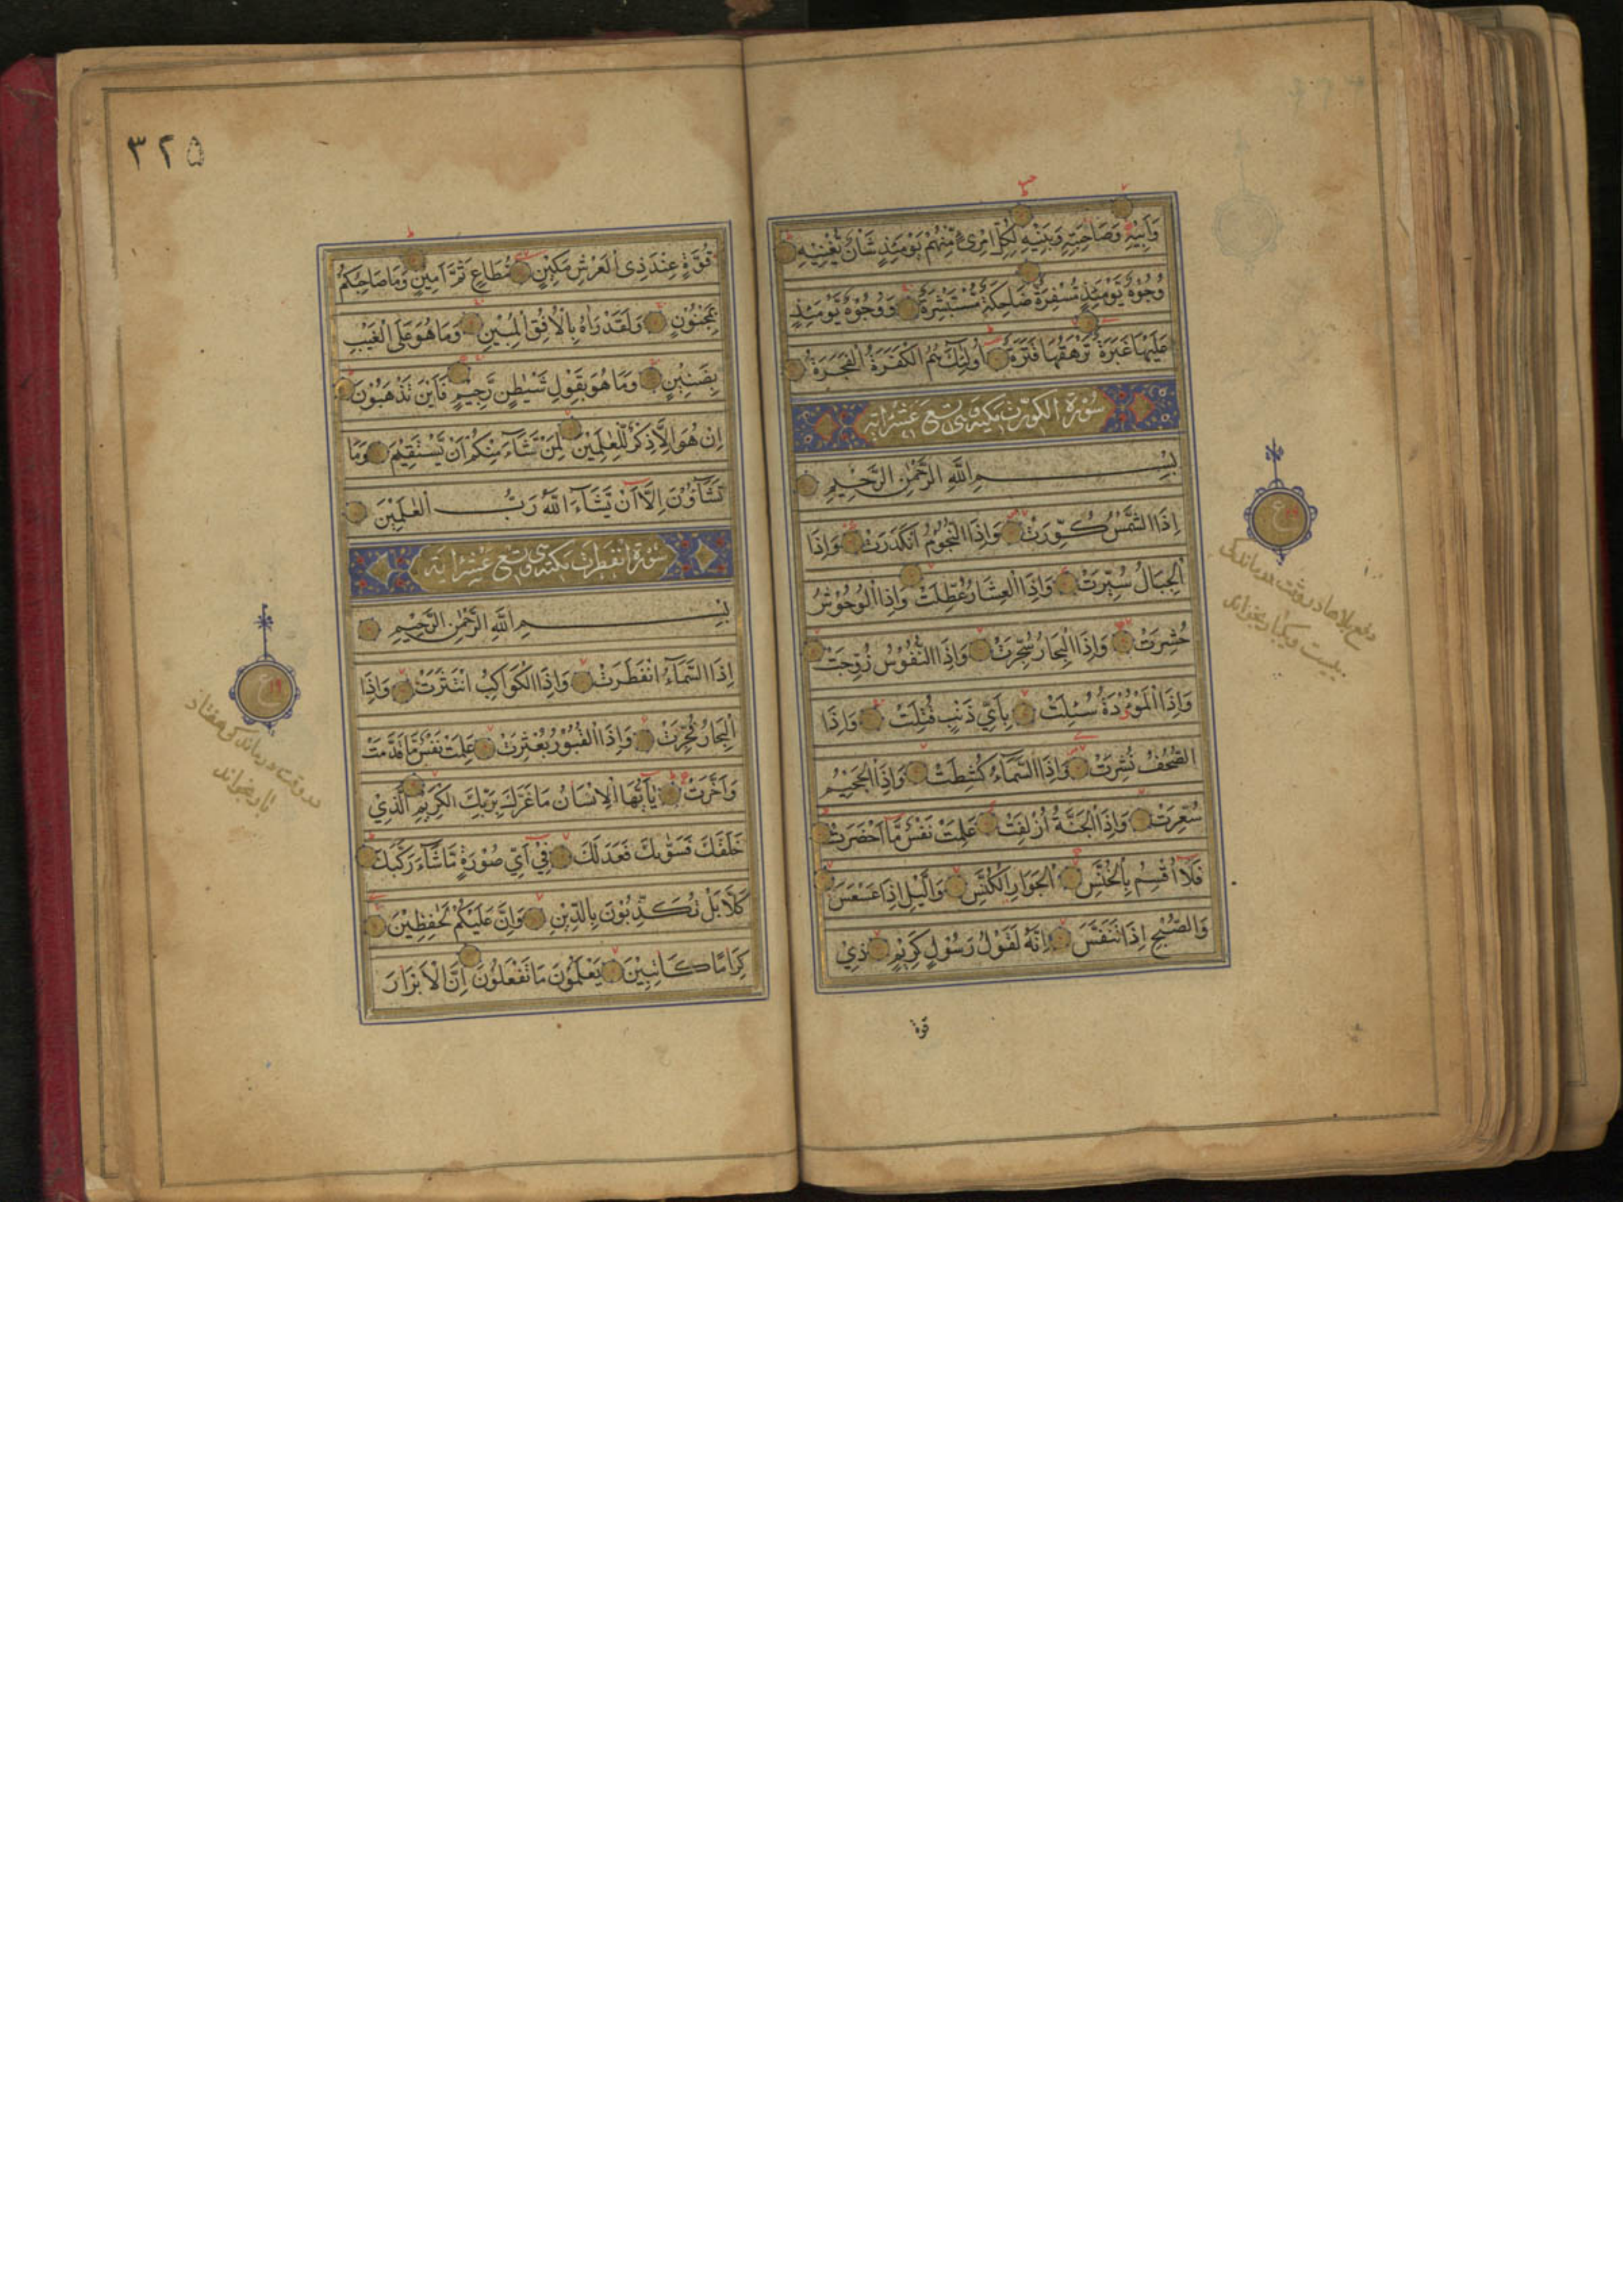 وَاَبِيْهِ وَصَاحِبَتِهٖ وَبَنِيْهِ لِكُلِّ امْرِئٍ مِّنْهُمْ يَوْمَئِذٍ شَاْنٌ يُّغْنِيْهِ
وُجُوْهٌ يَّوْمَئِذٍ مُّسْفِرَةٌ ضَاحِكَةٌ مُّسْتَبْشِرَةٌ وَوُجُوْهٌ يَّوْمَئِذٍ
عَلَيْهَا غَبَرَةٌ تَرْهَقُهَا قَتَرَةٌ اُولٰٓئِكَ هُمُ الْكَفَرَةُ الْفَجَرَةُ
سُوْرَة الكورت مكيه وهى تسع عشر اية
بِسْمِ اللّٰهِ الرَّحْمٰنِ الرَّحِيْمِ
اِذَا الشَّمْسُ كُوِّرَتْ وَاِذَا النُّجُوْمُ انْكَدَرَتْ وَاِذَا
الْجِبَالُ سُيِّرَتْ وَاِذَا الْعِشَارُ عُطِّلَتْ وَاِذَا الْوُحُوْشُ
حُشِرَتْ وَاِذَا الْبِحَارُ سُجِّرَتْ وَاِذَا النُّفُوْسُ زُوِّجَتْ
وَاِذَا الْمَوْءُدَةُ سُئِلَتْ بِاَيِّ ذَنْبٍ قُتِلَتْ وَاِذَا
الصُّحُفُ نُشِرَتْ وَاِذَا السَّمَآءُ كُشِطَتْ وَاِذَا الْجَحِيْمُ
سُعِّرَتْ وَاِذَا الْجَنَّةُ اُزْلِفَتْ عَلِمَتْ نَفْسٌ مَّا اَحْضَرَتْ
فَلَا اُقْسِمُ بِالْخُنَّسِ الْجَوَارِ الْكُنَّسِ وَالَّيْلِ اِذَا عَسْعَسَ
وَالصُّبْحِ اِذَا تَنَفَّسَ اِنَّهٗ لَقَوْلُ رَسُوْلٍ كَرِيْمٍ ذِيْ
قوة
ع
دفع بلاها در وقت درماندگی
بیست ویکبار بخواند
٣٢۵
قُوَّةٍ عِنْدَ ذِى الْعَرْشِ مَكِيْنٍ مُّطَاعٍ ثَمَّ اَمِيْنٍ وَمَا صَاحِبُكُمْ
بِمَجْنُوْنٍ وَلَقَدْ رَاٰهُ بِالْاُفُقِ الْمُبِيْنِ وَمَا هُوَ عَلَى الْغَيْبِ
بِضَنِيْنٍ وَمَا هُوَ بِقَوْلِ شَيْطٰنٍ رَّجِيْمٍ فَاَيْنَ تَذْهَبُوْنَ
اِنْ هُوَ اِلَّا ذِكْرٌ لِّلْعٰلَمِيْنَ لِمَنْ شَآءَ مِنْكُمْ اَنْ يَّسْتَقِيْمَ وَمَا
تَشَآؤُنَ اِلَّا اَنْ يَّشَآءَ اللّٰهُ رَبُّ الْعٰلَمِيْنَ
سُوْرَة انفطرت مكية وهى تسع عشر اية
بِسْمِ اللّٰهِ الرَّحْمٰنِ الرَّحِيْمِ
اِذَا السَّمَآءُ انْفَطَرَتْ وَاِذَا الْكَوَاكِبُ انْتَثَرَتْ وَاِذَا
الْبِحَارُ فُجِّرَتْ وَاِذَا الْقُبُوْرُ بُعْثِرَتْ عَلِمَتْ نَفْسٌ مَّا قَدَّمَتْ
وَاَخَّرَتْ يٰٓاَيُّهَا الْاِنْسَانُ مَا غَرَّكَ بِرَبِّكَ الْكَرِيْمِ الَّذِيْ
خَلَقَكَ فَسَوّٰىكَ فَعَدَلَكَ فِيْ اَيِّ صُوْرَةٍ مَّا شَآءَ رَكَّبَكَ
كَلَّا بَلْ تُكَذِّبُوْنَ بِالدِّيْنِ وَاِنَّ عَلَيْكُمْ لَحٰفِظِيْنَ
كِرَامًا كَاتِبِيْنَ يَعْلَمُوْنَ مَا تَفْعَلُوْنَ اِنَّ الْاَبْرَارَ
ع
در وقت درماندگی هفتاد
بار بخواند